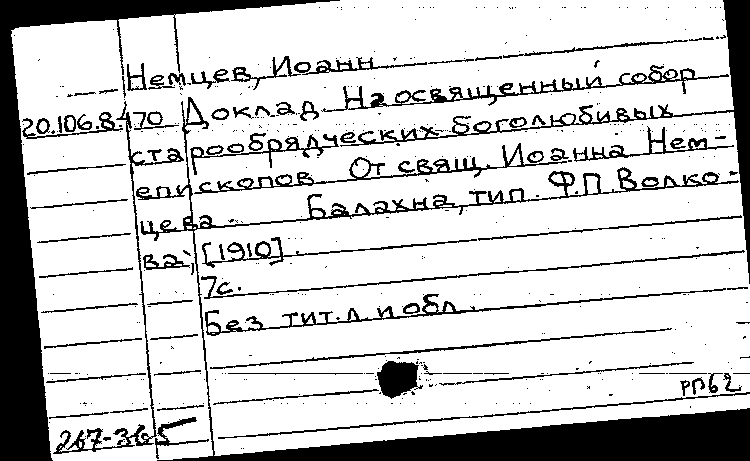 Немцев, Иоанн.
20.106.8.470 Доклад. На освященный собор
старообрядческих боголюбивых
епископов От свящ. Иоанна Нем-
цева. Балахна, тип. Ф.П. Волко-
ва, [1910].
7с.
Без тит. л. и обл.
РПб2
267-365